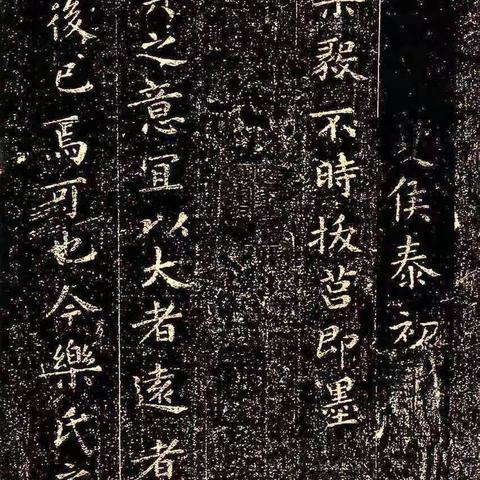 侯泰初
毅不時拔莒即墨
之意宜以大者遠者
後已焉可也今樂氏